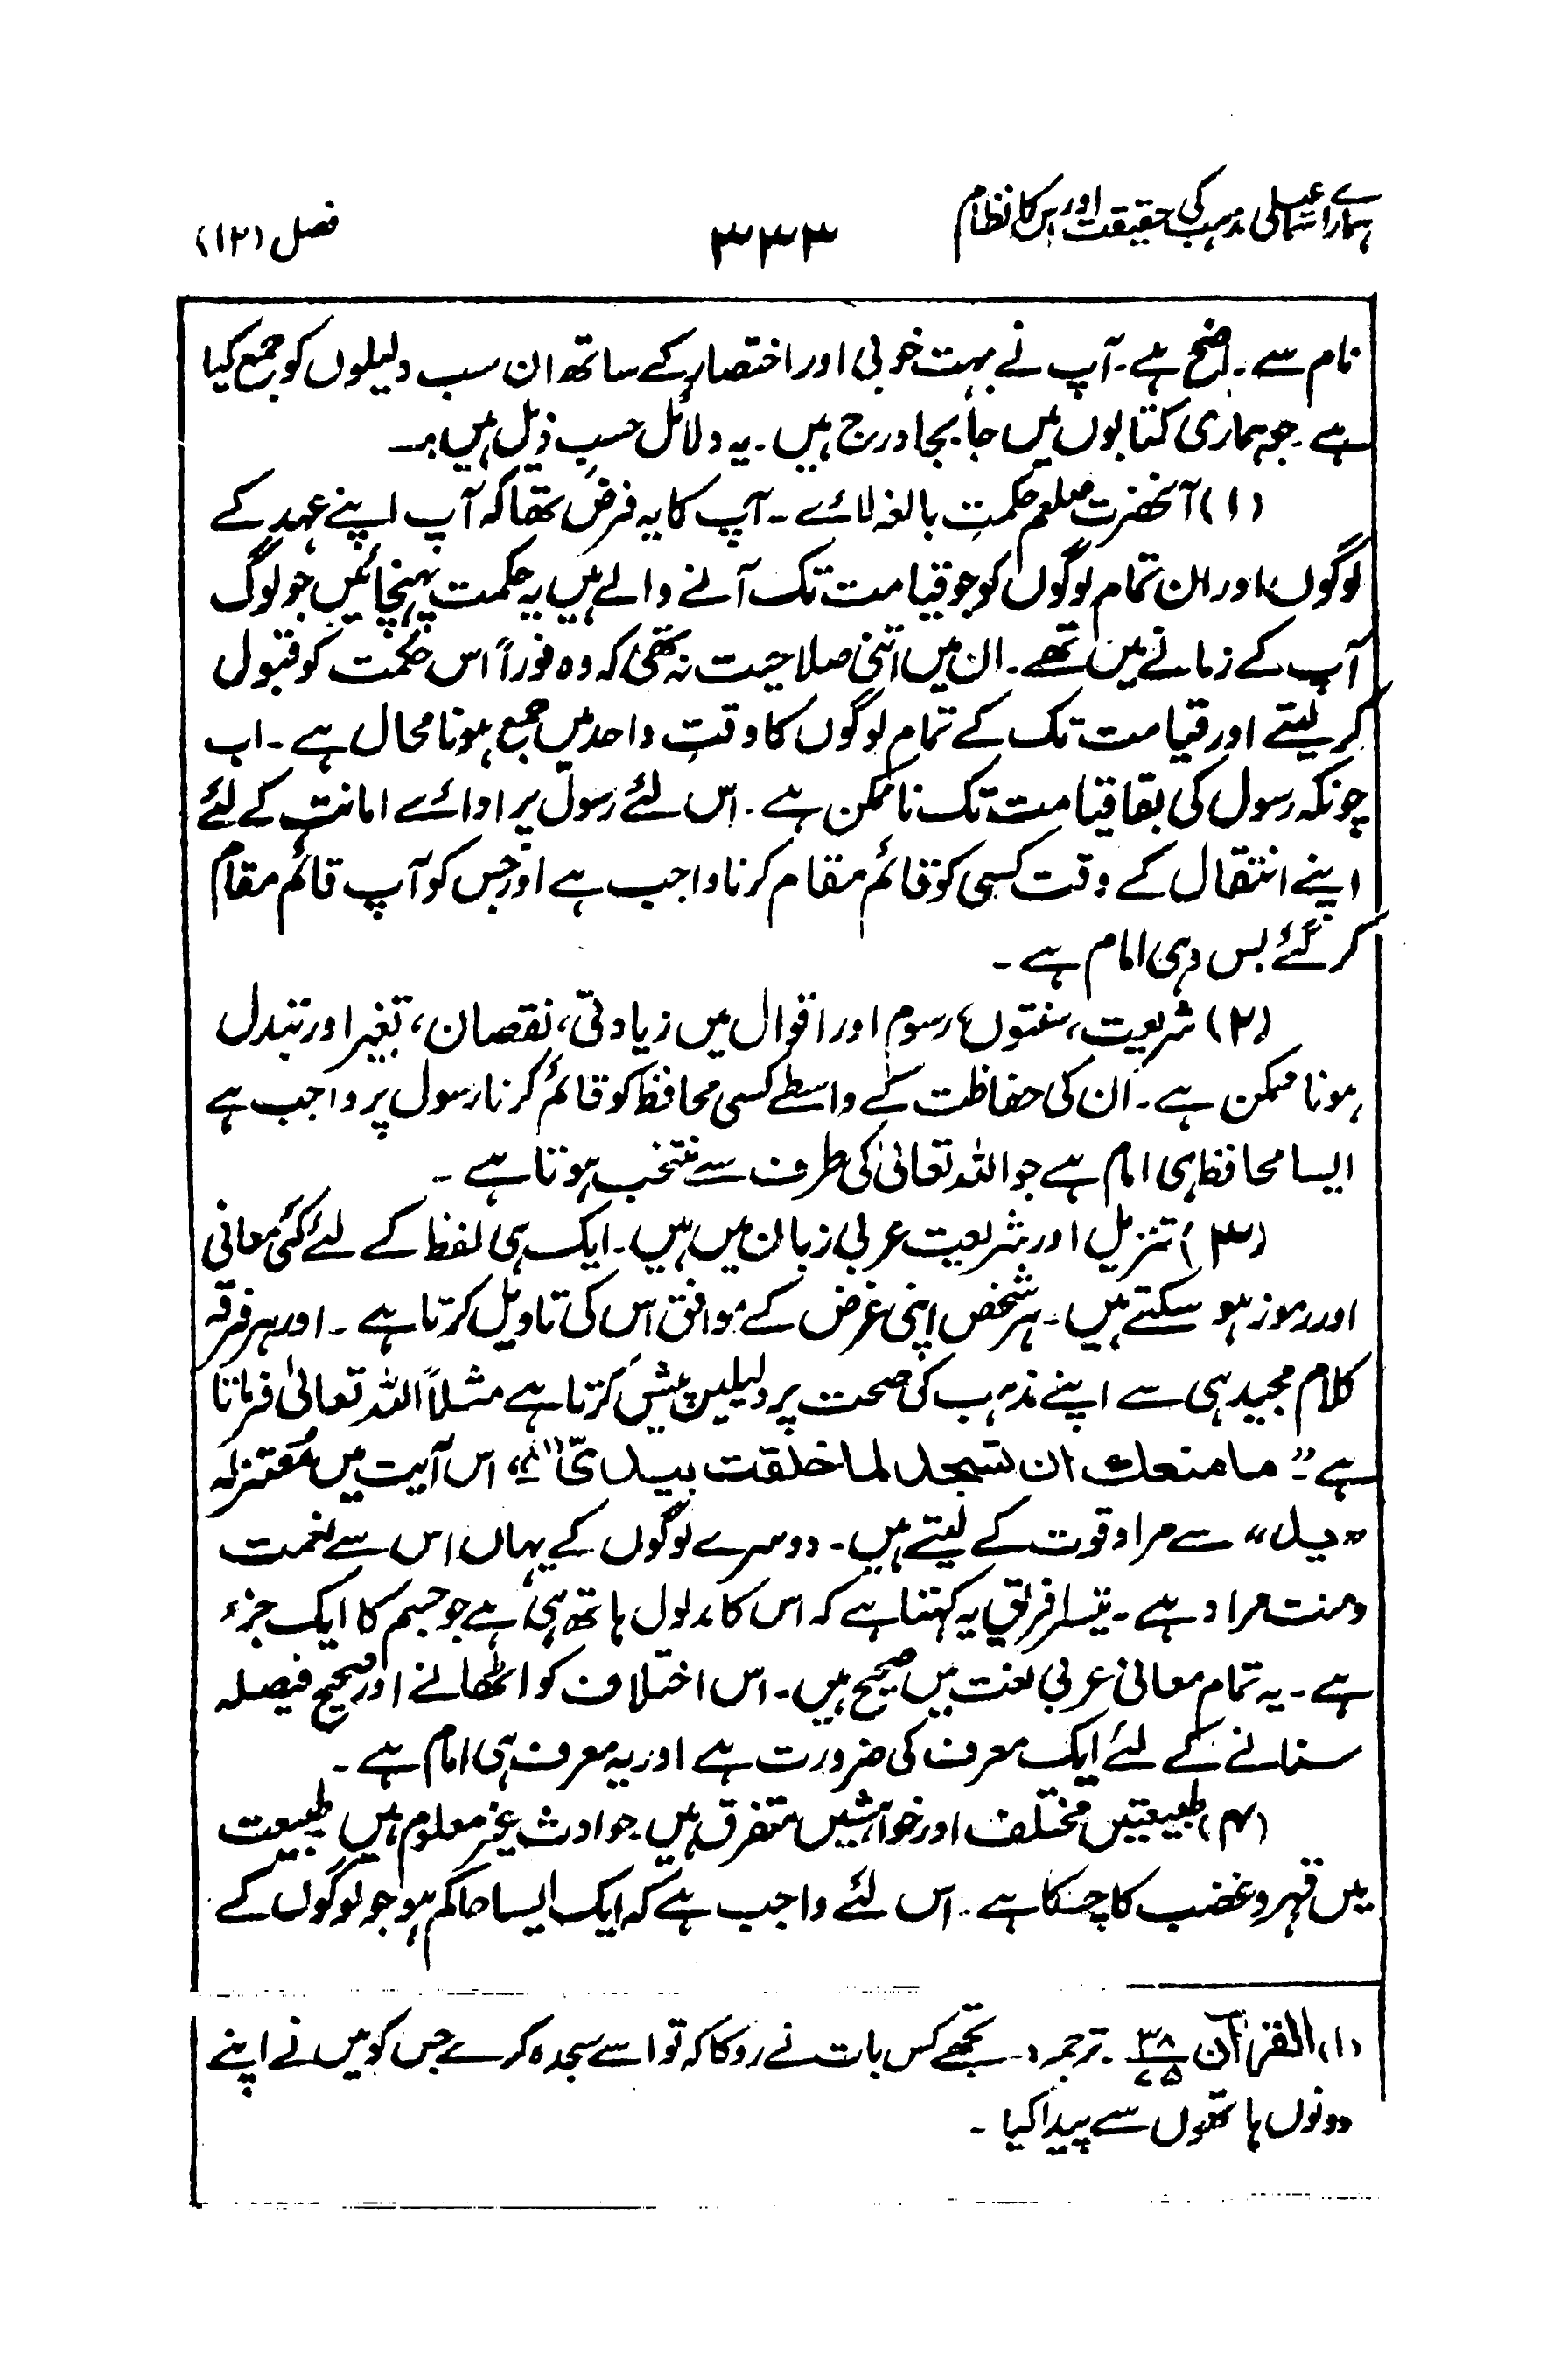 ہمارے اسماعیلی مذہب کی حقیقت اور اس کا نظام ۳۳۳ فصل (۱۲)
نام سے واضح ہے۔ آپ نے بہت خوبی اور اختصار کے ساتھ ان سب دلیلوں کو جمع کیا
ہے۔ جو ہماری کتابوں میں جا بجا درج ہیں۔ یہ دلائل حسبِ ذیل ہیں :۔
(۱) آنحضرت صلعم حکمتِ بالغہ لائے۔ آپ کا یہ فرض تھا کہ آپ اپنے عہد کے
لوگوں اور ان تمام لوگوں کو جو قیامت تک آنے والے ہیں یہ حکمت پہنچائیں جو لوگ
آپ کے زمانے میں تھے۔ ان میں اتنی صلاحیت نہ تھی کہ وہ فوراً اس حکمت کو قبول
کر لیتے اور قیامت تک کے تمام لوگوں کا وقتِ واحد میں جمع ہونا محال ہے۔ اب
چونکہ رسول کی بقا قیامت تک ناممکن ہے۔ اس لئے رسول پر ادائے امانت کے لئے
اپنے انتقال کے وقت کسی کو قائم مقام کرنا واجب ہے اور جس کو آپ قائم مقام
کر گئے بس وہی امام ہے۔
(۲) شریعت، سنتوں، رسوم اور اقوال میں زیادتی، نقصان، تغیر اور تبدل
ہونا ممکن ہے۔ ان کی حفاظت کے واسطے کسی محافظ کو قائم کرنا رسول پر واجب ہے
ایسا محافظ ہی امام ہے جو اللہ تعالیٰ کی طرف سے منتخب ہوتا ہے۔
(۳) تنزیل اور شریعت عربی زبان میں ہیں۔ ایک ہی لفظ کے لئے کئی معانی
اور رموز ہو سکتے ہیں۔ ہر شخص اپنی غرض کے موافق اس کی تاویل کرتا ہے۔ اور ہر فرقہ
کلام مجید ہی سے اپنے مذہب کی صحت پر دلیلیں پیش کرتا ہے مثلاً اللہ تعالیٰ فرماتا
ہے "ما منعك ان تسجد لما خلقت بيدىّ (۱)" اس آیت میں مُعتزلہ
"ید" سے مراد قوت کے لیتے ہیں۔ دوسرے لوگوں کے یہاں اس سے نعمت
ومنت مراد ہے۔ تیسرا فریق یہ کہتا ہے کہ اس کا مدلول ہاتھ ہی ہے جو جسم کا ایک جزء
ہے۔ یہ تمام معانی عربی لغت میں صحیح ہیں۔ اس اختلاف کو اٹھانے اور صحیح فیصلہ
سنانے کے لئے ایک معرف کی ضرورت ہے اور یہ معرف ہی امام ہے۔
(۴) طبیعتیں مختلف اور خواہشیں متفرق ہیں۔ حوادث غیر معلوم ہیں۔ طبیعت
میں قہر و غضب کا چسکا ہے۔ اس لئے واجب ہے کہ ایک ایسا حاکم ہو جو لوگوں کے
(۱) القرآن ۳۸/۷۵ ۔ ترجمہ ۔ تجھے کس بات نے روکا کہ تو اسے سجدہ کرے جس کو میں نے اپنے
دونوں ہاتھوں سے پیدا کیا ۔